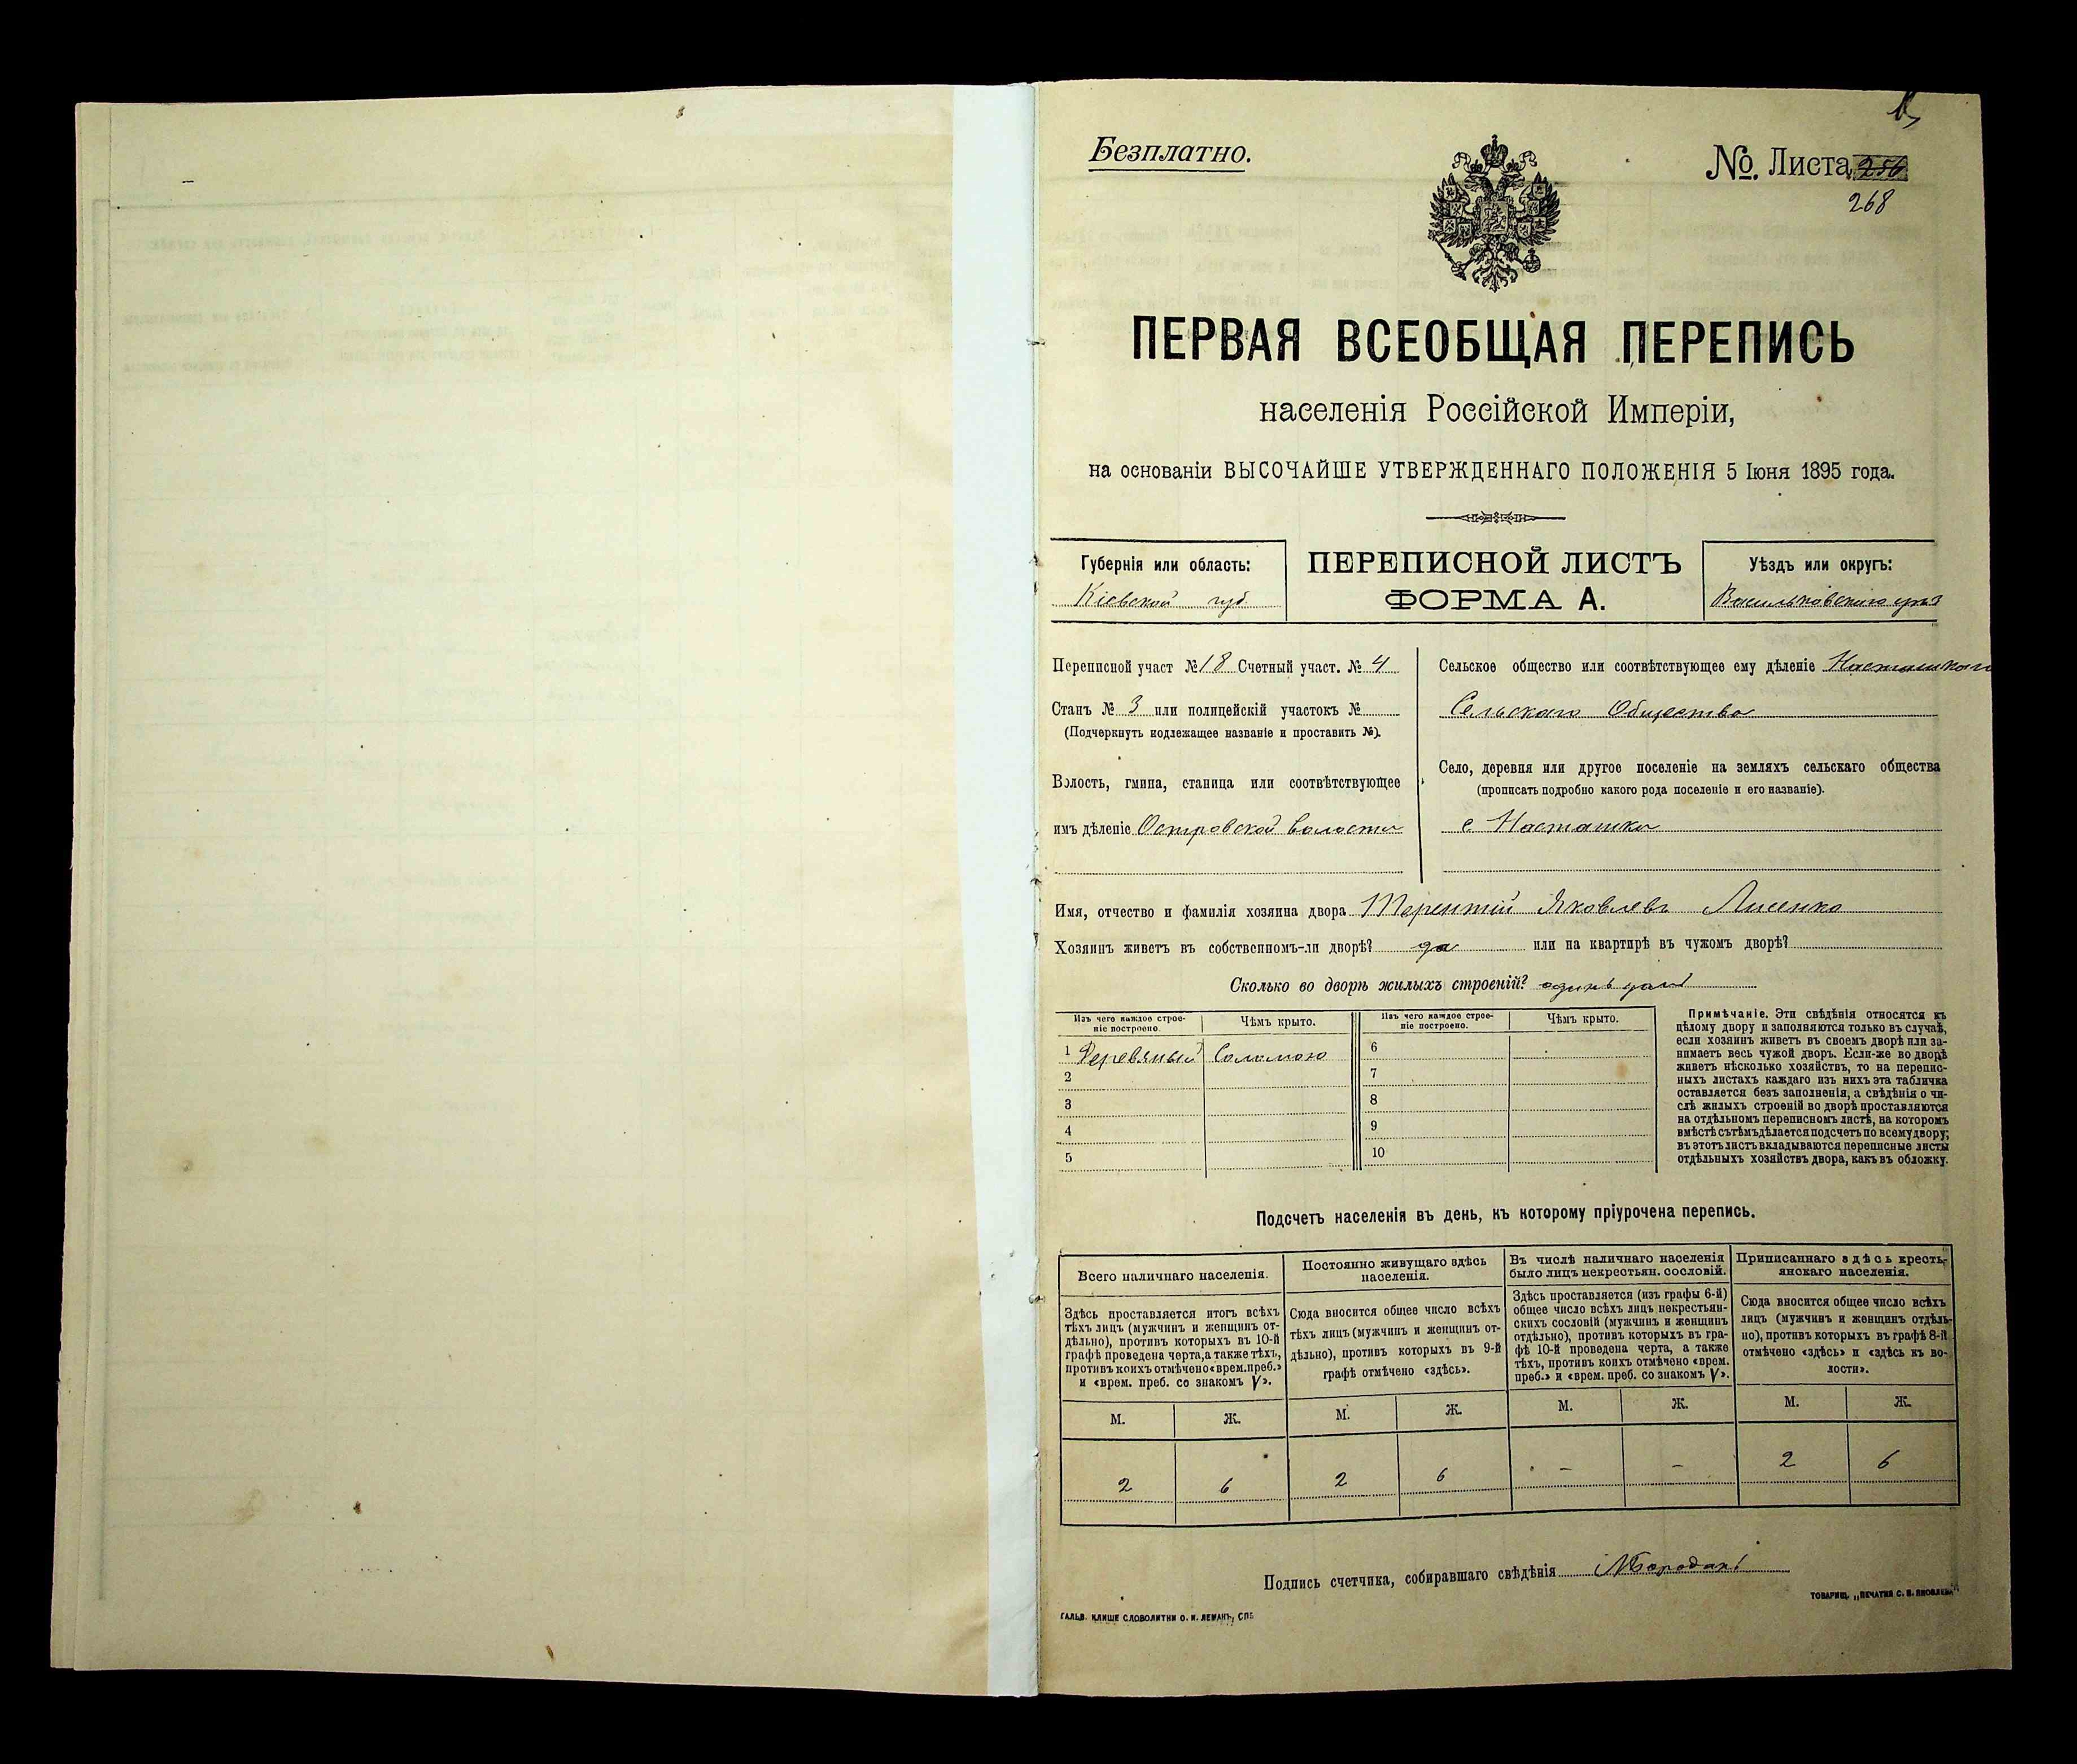 Безплатно.
№. Листа 256
268
ПЕРВАЯ ВСЕОБЩАЯ ПЕРЕПИСЬ
населенія Россійской Имперіи,
на основаніи ВЫСОЧАЙШЕ УТВЕРЖДЕННАГО ПОЛОЖЕНІЯ 5 Іюня 1895 года.
Губернія или область:
Кіевской губ.
ПЕРЕПИСНОЙ ЛИСТЪ
ФОРМА А.
Уѣздъ или округъ:
Васильковскаго уѣз
Переписной участ №18 Счетный участ. № 4
Станъ № 3 или полицейскій участокъ №
(Подчеркнуть подлежащее названіе и проставить №).
Волость, гмина, станица или соотвѣтствующее
имъ дѣленіе Островской волости
Сельское общество или соотвѣтствующее ему дѣленіе Насташскаго
Сельскаго Общества
Село, деревня или другое поселеніе на земляхъ сельскаго общества
(прописать подробно какого рода поселеніе и его названіе).
с Насташка
Имя, отчество и фамилія хозяина двора Терентій Яковлевъ Лисенко
Хозяинъ живетъ въ собственномъ-ли дворѣ? да или на квартирѣ въ чужомъ дворѣ?
Сколько во дворѣ жилыхъ строеній? одинъ домъ
Изъ чего каждое строе-
ніе построено.
Чѣмъ крыто.
Изъ чего каждое строе-
ніе построено.
Чѣмъ крыто.
1 Деревяный Соломою
2
3
4
5
6
7
8
9
10
Примѣчаніе. Эти свѣдѣнія относятся къ
цѣлому двору и заполняются только въ случаѣ,
если хозяинъ живетъ въ своемъ дворѣ или за-
нимаетъ весь чужой дворъ. Если-же во дворѣ
живетъ нѣсколько хозяйствъ, то на перепис-
ныхъ листахъ каждаго изъ нихъ эта табличка
оставляется безъ заполненія, а свѣдѣнія о чи-
слѣ жилыхъ строеній во дворѣ проставляются
на отдѣльномъ переписномъ листѣ, на которомъ
вмѣстѣ съ тѣмъ дѣлается подсчетъ по всему двору;
въ этотъ листъ вкладываются переписные листы
отдѣльныхъ хозяйствъ двора, какъ въ обложку.
Подсчетъ населенія въ день, къ которому пріурочена перепись.
Всего наличнаго населенія.
Здѣсь проставляется итогъ всѣхъ
тѣхъ лицъ (мужчинъ и женщинъ от-
дѣльно), противъ которыхъ въ 10-й
графѣ проведена черта, а также тѣхъ,
противъ коихъ отмѣчено «врем. преб.»
и «врем. преб. со знакомъ V».
М. Ж.
2 6
Постоянно живущаго здѣсь
населенія.
Сюда вносится общее число всѣхъ
тѣхъ лицъ (мужчинъ и женщинъ от-
дѣльно), противъ которыхъ въ 9-й
графѣ отмѣчено «здѣсь».
М. Ж.
2 6
Въ числѣ наличнаго населенія
было лицъ некрестьян. сословій.
Здѣсь проставляется (изъ графы 6-й)
общее число всѣхъ лицъ некрестьян-
скихъ сословій (мужчинъ и женщинъ
отдѣльно), противъ которыхъ въ гра-
фѣ 10-й проведена черта, а также
тѣхъ, противъ коихъ отмѣчено «врем.
преб.» и «врем. преб. со знакомъ V».
М. Ж.
– –
Приписаннаго здѣсь кресть-
янскаго населенія.
Сюда вносится общее число всѣхъ
лицъ (мужчинъ и женщинъ отдѣль-
но), противъ которыхъ въ графѣ 8-й
отмѣчено «здѣсь» и «здѣсь къ во-
лости».
М. Ж.
2 6
Подпись счетчика, собиравшаго свѣдѣнія
ГАЛЬВ. КЛИШЕ СЛОВОЛИТНИ О. И. ЛЕМАНЪ, СПБ.
ТОВАРИЩ. „ПЕЧАТНЯ С. П. ЯКОВЛЕВА“